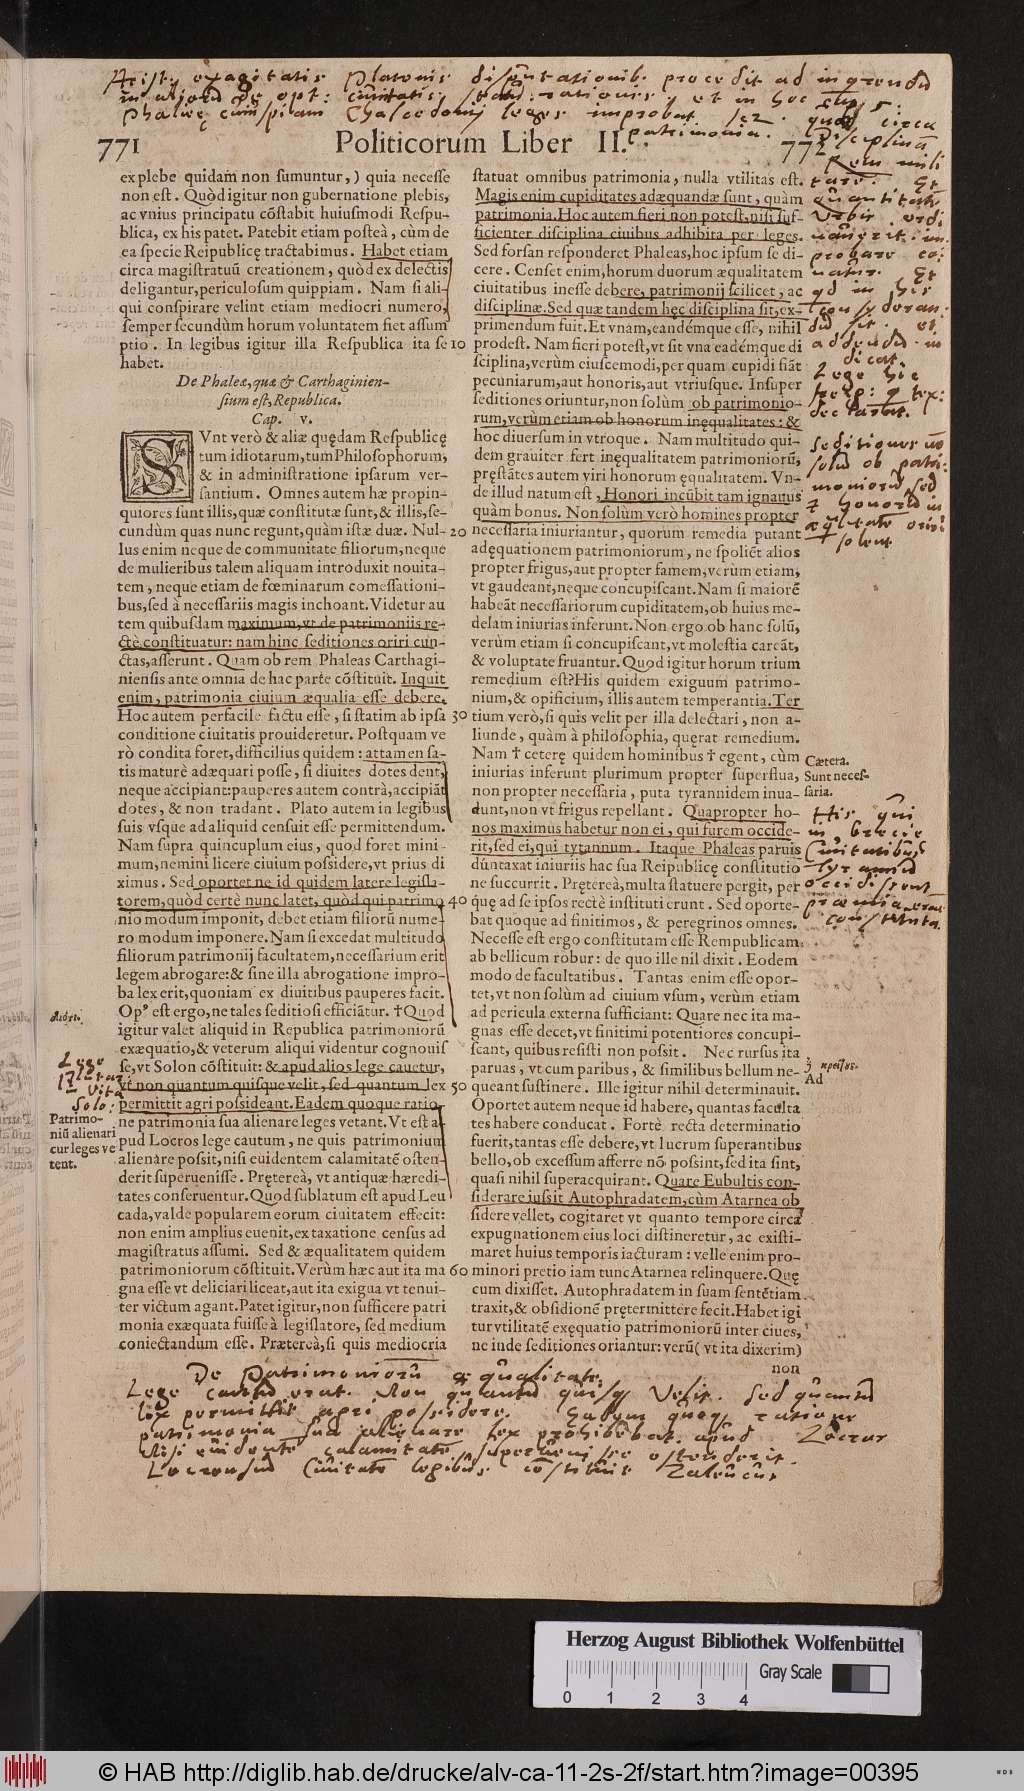 771
Politicorum Liber II.
772
ex plebe quidam non sumuntur,) quia necesse
non est. Quòd igitur non gubernatione plebis,
ac vnius principatu cōstabit huiusmodi Respu-
blica, ex his patet. Patebit etiam posteà, cùm de
ea specie Reipublicę tractabimus. Habet etiam
circa magistratuū creationem, quòd ex delectis
deligantur, periculosum quippiam. Nam si ali-
qui conspirare velint etiam mediocri numero,
semper secundùm horum voluntatem fiet assum
ptio. In legibus igitur illa Respublica ita se
habet.
De Phaleæ, quæ & Carthaginien-
sium est, Republica.
Cap. v.
SVnt verò & aliæ quędam Respublicę
tum idiotarum, tum Philosophorum,
& in administratione ipsarum ver-
santium. Omnes autem hæ propin-
quiores sunt illis, quæ constitutæ sunt, & illis, se-
cundùm quas nunc regunt, quàm istæ duæ. Nul-
lus enim neque de communitate filiorum, neque
de mulieribus talem aliquam introduxit nouita-
tem, neque etiam de fœminarum comessationi-
bus, sed à necessariis magis inchoant. Videtur au
tem quibusdam maximum, vt de patrimoniis re-
ctè constituatur: nam hinc seditiones oriri cun-
ctas, asserunt. Quam ob rem Phaleas Carthagi-
niensis ante omnia de hac parte cōstituit. Inquit
enim, patrimonia ciuium æqualia esse debere.
Hoc autem perfacile factu esse, si statim ab ipsa
conditione ciuitatis prouideretur. Postquam ve
rò condita foret, difficilius quidem: attamen sa-
tis maturè adæquari posse, si diuites dotes dent,
neque accipiant: pauperes autem contrà, accipiāt
dotes, & non tradant. Plato autem in legibus
suis vsque ad aliquid censuit esse permittendum.
Nam supra quincuplum eius, quod foret mini-
mum, nemini licere ciuium possidere, vt prius di
ximus. Sed oportet ne id quidem latere legisla-
torem, quòd certè nunc latet, quòd qui patrimo
nio modum imponit, debet etiam filiorū nume-
ro modum imponere. Nam si excedat multitudo
filiorum patrimonij facultatem, necessarium erit
legem abrogare: & sine illa abrogatione impro-
ba lex erit, quoniam ex diuitibus pauperes facit.
Opꝰ est ergo, ne tales seditiosi efficiātur. †Quod
igitur valet aliquid in Republica patrimoniorū
exæquatio, & veterum aliqui videntur cognouis
se, vt Solon cōstituit: & apud alios lege cauetur,
vt non quantum quisque velit, sed quantum lex
permittit agri possideant. Eadem quoque ratio-
ne patrimonia sua alienare leges vetant. Vt est a-
pud Locros lege cautum, ne quis patrimonium
alienare possit, nisi euidentem calamitatē osten-
derit superuenisse. Prętereà, vt antiquæ hæredi-
tates conseruentur. Quod sublatum est apud Leu
cada, valde popularem eorum ciuitatem effecit:
non enim amplius euenit, ex taxatione census ad
magistratus assumi. Sed & æqualitatem quidem
patrimoniorum cōstituit. Verùm hæc aut ita ma
gna esse vt deliciari liceat, aut ita exigua vt tenui-
ter victum agant. Patet igitur, non sufficere patri
monia exæquata fuisse à legislatore, sed medium
coniectandum esse. Præterea, si quis mediocria
10
20
30
40
50
60
Patrimo-
niū alienari
cur leges ve
tent.
statuat omnibus patrimonia, nulla vtilitas est.
Magis enim cupiditates adæquandæ sunt, quàm
patrimonia. Hoc autem fieri non potest, nisi suf-
ficienter disciplina ciuibus adhibita per leges.
Sed forsan responderet Phaleas, hoc ipsum se di-
cere. Censet enim, horum duorum æqualitatem
ciuitatibus inesse debere, patrimonij scilicet, ac
disciplinæ. Sed quæ tandem hęc disciplina sit, ex-
primendum fuit. Et vnam, eandémque esse, nihil
prodest. Nam fieri potest, vt sit vna eadémque di
sciplina, verùm eiuscemodi, per quam cupidi fiāt
pecuniarum, aut honoris, aut vtriusque. Insuper
seditiones oriuntur, non solùm ob patrimonio-
rum, verùm etiam ob honorum inęqualitates: &
hoc diuersum in vtroque. Nam multitudo qui-
dem grauiter fert inęqualitatem patrimoniorū,
pręstātes autem viri honorum ęqualitatem. Vn-
de illud natum est, Honori incūbit tam ignauus
quàm bonus. Non solùm verò homines propter
necessaria iniuriantur, quorum remedia putant
adęquationem patrimoniorum, ne spoliēt alios
propter frigus, aut propter famem, verùm etiam,
vt gaudeant, neque concupiscant. Nam si maiorē
habeāt necessariorum cupiditatem, ob huius me-
delam iniurias inferunt. Non ergo ob hanc solū,
verùm etiam si concupiscant, vt molestia careāt,
& voluptate fruantur. Quod igitur horum trium
remedium est? His quidem exiguum patrimo-
nium, & opificium, illis autem temperantia. Ter
tium verò, si quis velit per illa delectari, non a-
liunde, quàm à philosophia, quęrat remedium.
Nam † ceterę quidem hominibus † egent, cùm
iniurias inferunt plurimum propter superflua,
non propter necessaria, puta tyrannidem inua-
dunt, non vt frigus repellant. Quapropter ho-
nos maximus habetur non ei, qui furem occide-
rit, sed ei, qui tyrannum. Itaque Phaleas paruis
dūntaxat iniuriis hac sua Reipublicę constitutio
ne succurrit. Prętereà, multa statuere pergit, per
quę ad se ipsos rectè instituti erunt. Sed oporte-
bat quoque ad finitimos, & peregrinos omnes.
Necesse est ergo constitutam esse Rempublicam
ab bellicum robur: de quo ille nil dixit. Eodem
modo de facultatibus. Tantas enim esse opor-
tet, vt non solùm ad ciuium vsum, verùm etiam
ad pericula externa sufficiant: Quare nec ita ma-
gnas esse decet, vt finitimi potentiores concupi-
scant, quibus resisti non possit. Nec rursus ita
paruas, vt cum paribus, & similibus bellum ne-
queant sustinere. Ille igitur nihil determinauit.
Oportet autem neque id habere, quantas faculta
tes habere conducat. Fortè recta determinatio
fuerit, tantas esse debere, vt lucrum superantibus
bello, ob excessum afferre nō possint, sed ita sint,
quasi nihil superacquirant. Quare Eubultis con-
siderare iussit Autophradatem, cùm Atarnea ob
sidere vellet, cogitaret vt quanto tempore circa
expugnationem eius loci distineretur, ac existi-
maret huius temporis iacturam: velle enim pro-
minori pretio iam tunc Atarnea relinquere. Quę
cum dixisset. Autophradatem in suam sentētiam
traxit, & obsidionē prętermittere fecit. Habet igi
tur vtilitatē exęquatio patrimoniorū inter ciues,
ne inde seditiones oriantur: verū (vt ita dixerim)
non
Cætera.
Sunt neces-
saria.
Ad
Seditiones nō
solū ob patri-
moniorū sed
De Patrimoniorū æqualitate.
Lege cautū erat. Non quantū quisq; Velit. Sed quantū
lex permittit agri possidere. Eadem quoq; ratione
patrimonia sua alienare lex prohibebat. apud Locros
Nisi euidentē calamitatē superuenisse ostenderit.
Locrensiū Ciuitatē legibus cōstituit Zaleucus
Herzog August Bibliothek Wolfenbüttel
Gray Scale
0 1 2 3 4
© HAB http://diglib.hab.de/drucke/alv-ca-11-2s-2f/start.htm?image=00395